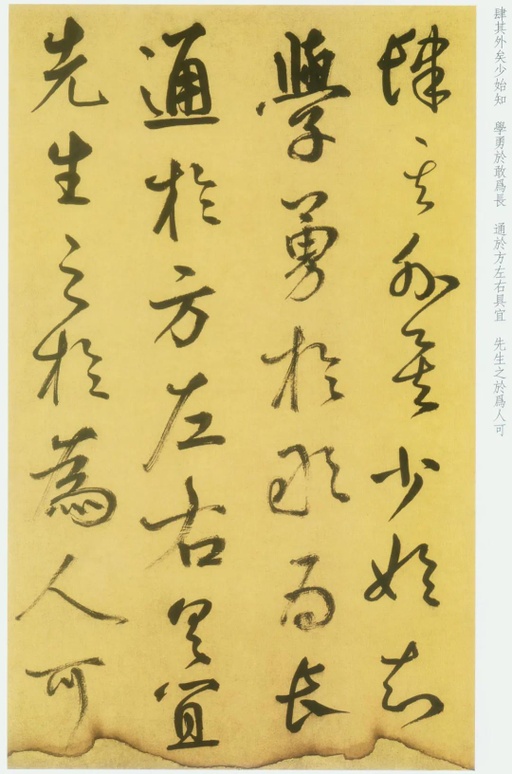 肆其外矣少始知
學勇於敢為長
通於方左右具宜
先生之於為人可
肆其外矣少始知　學勇於敢爲長　通於方左右具宜　先生之於爲人可